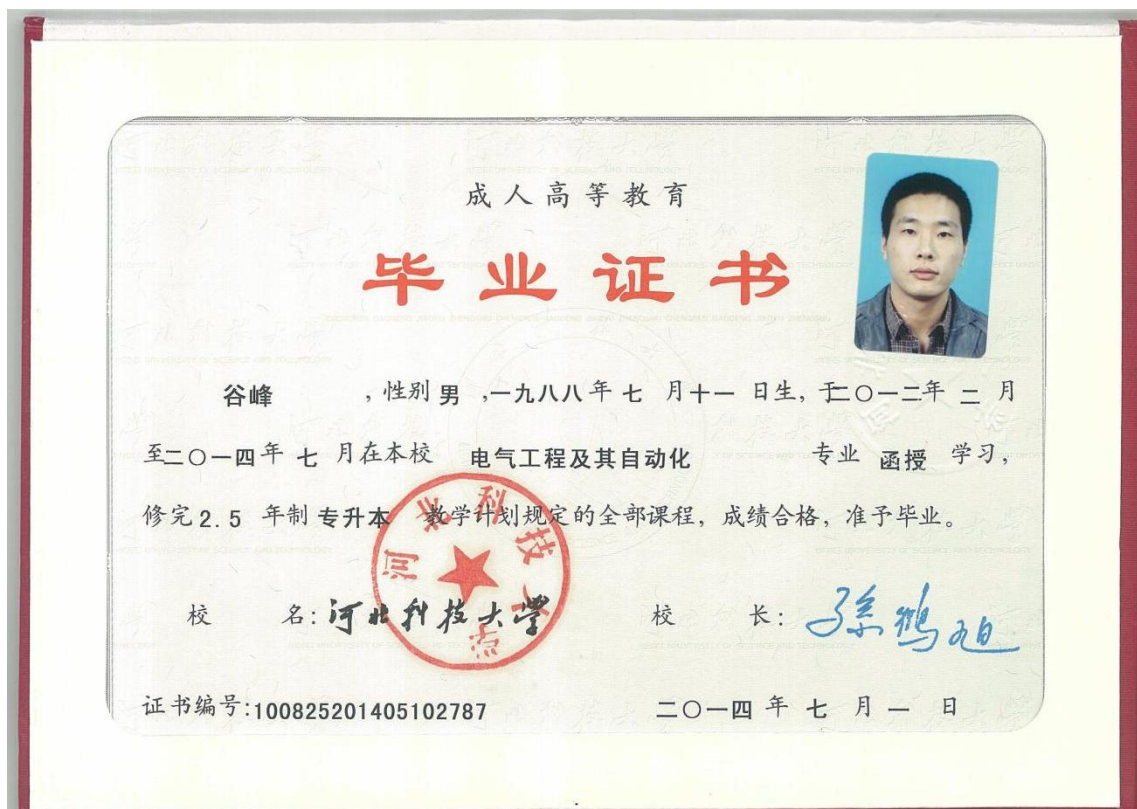 成人高等教育
毕业证书
谷峰 , 性别 男 ,一九八八年 七 月十一 日生, 于二〇一二年 二 月
至二〇一四年 七 月在本校 电气工程及其自动化 专业 函授 学习,
修完2.5 年制 专升本 教学计划规定的全部课程, 成绩合格, 准予毕业。
河北科技大学
校 名: 河北科技大学 校 长: 孙鹤旭
证书编号:100825201405102787 二〇一四 年 七 月 一 日